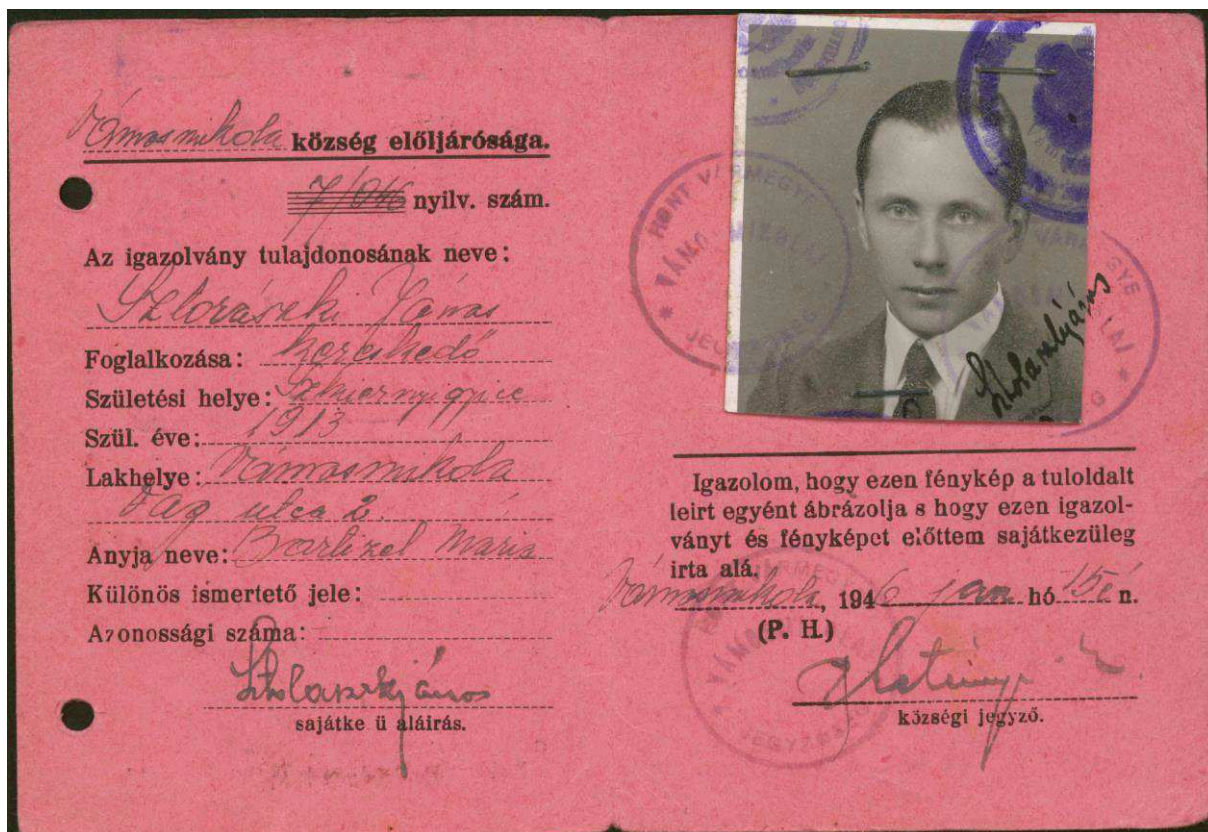 Vámosmikola község előljárósága.
7/946 nyilv. szám.
Az igazolvány tulajdonosának neve:
János
Foglalkozása: kereskedő
Születési helye:
Szül. éve: 1913
Lakhelye: Vámosmikola
Vág ulca 2.
Anyja neve: Mária
Különös ismertető jele:
Azonossági száma:
sajátke ü aláirás.
HONT VÁRMEGYE
Igazolom, hogy ezen fénykép a tuloldalt
leirt egyént ábrázolja s hogy ezen igazol-
ványt és fényképet előttem sajátkezüleg
irta alá.
Vámosmikola, 1946 jan hó 15én.
(P. H.)
községi jegyző.